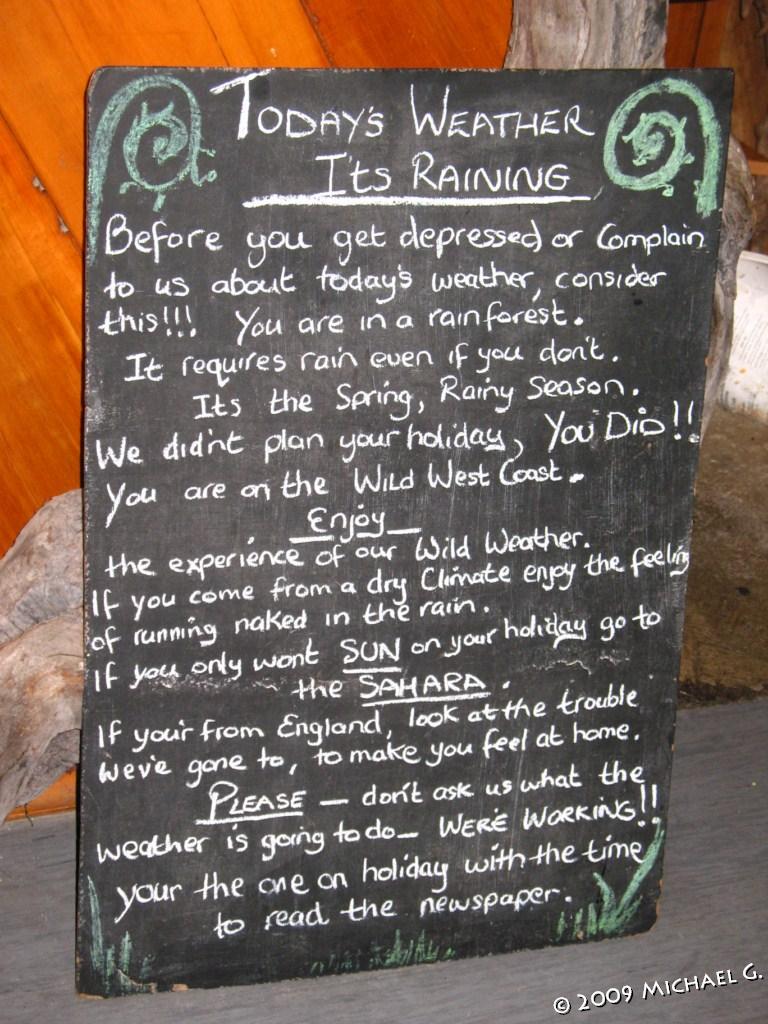 TODAY'S WEATHER
It's RAINING
Before you get depressed or Complain
to us about today's weather, consider
this!!! You are in a rainforest.
It requires rain even if you don't.
Its the Spring, Rainy Season.
We didn't plan your holiday, YOU DID!!
You are on the Wild West Coast.
Enjoy
the experience of our Wild Weather.
If you come from a dry Climate enjoy the feeling
of running naked in the rain.
If you only wont SUN on your holiday go to
the SAHARA.
If your from England, look at the trouble
weve gone to, to make you feel at home.
PLEASE – don't ask us what the
weather is going to do – WERE WORKING!!
your the one on holiday with the time
to read the newspaper.
© 2009 MICHAEL G.